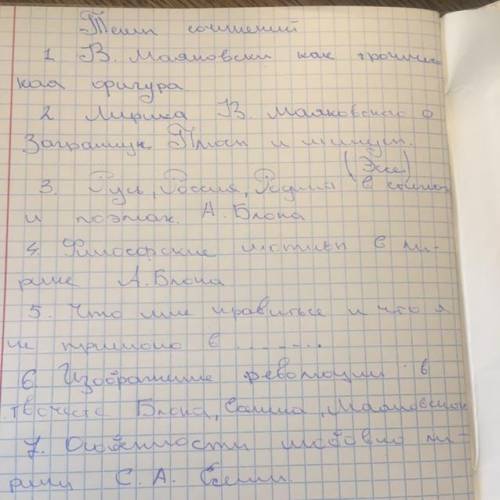 Темы сочинений
1 В. Маяковски как трагичес
кая фигура
2 Лирика В. Маяковского о
Загранице Плюсы и минусы.
(Эссе)
3. Русь, Россия, Родина в стихах
и поэмах А. Блока
4. Философские мотивы в ли-
рике А. Блока
5. Что мне нравиться и что я
не принимаю в .......
6. Изображение революции в
творчестве Блока, Есенина, Маяковского
7. Особенности любовно ли-
рики С. А. Есенин.